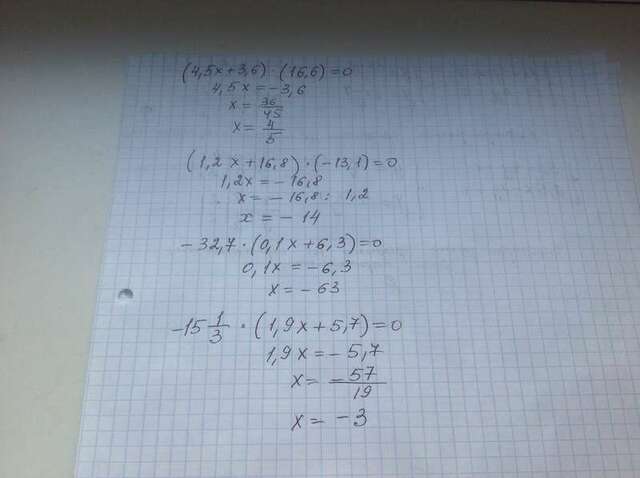 (4,5x+3,6)·(16,6)=0
4,5x=-3,6
x=36/45
x=4/5
(1,2x+16,8)·(-13,1)=0
1,2x=-16,8
x=-16,8:1,2
x=-14
-32,7·(0,1x+6,3)=0
0,1x=-6,3
x=-63
-15 1/3·(1,9x+5,7)=0
1,9x=-5,7
x=-57/19
x=-3